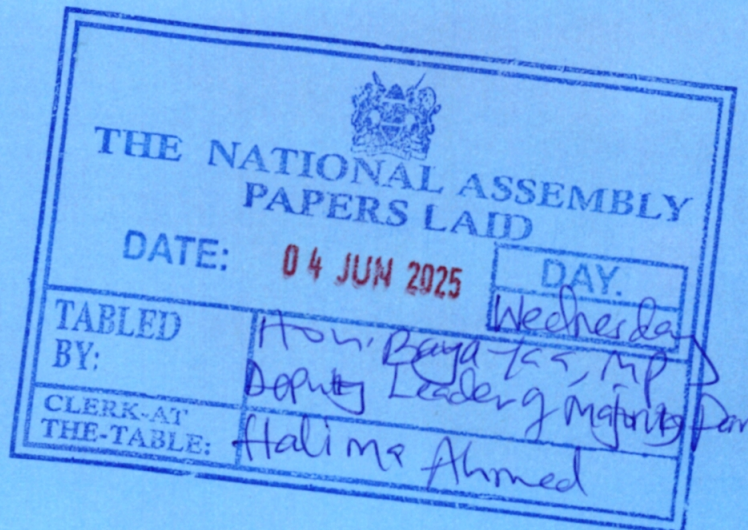 THE NATIONAL ASSEMBLY
PAPERS LAID
DATE: 04 JUN 2025
DAY.
Wednesday
TABLED BY:
Hon. Baya, MP
Deputy Leader of Majority Par
CLERK-AT THE-TABLE:
Halima Ahmed